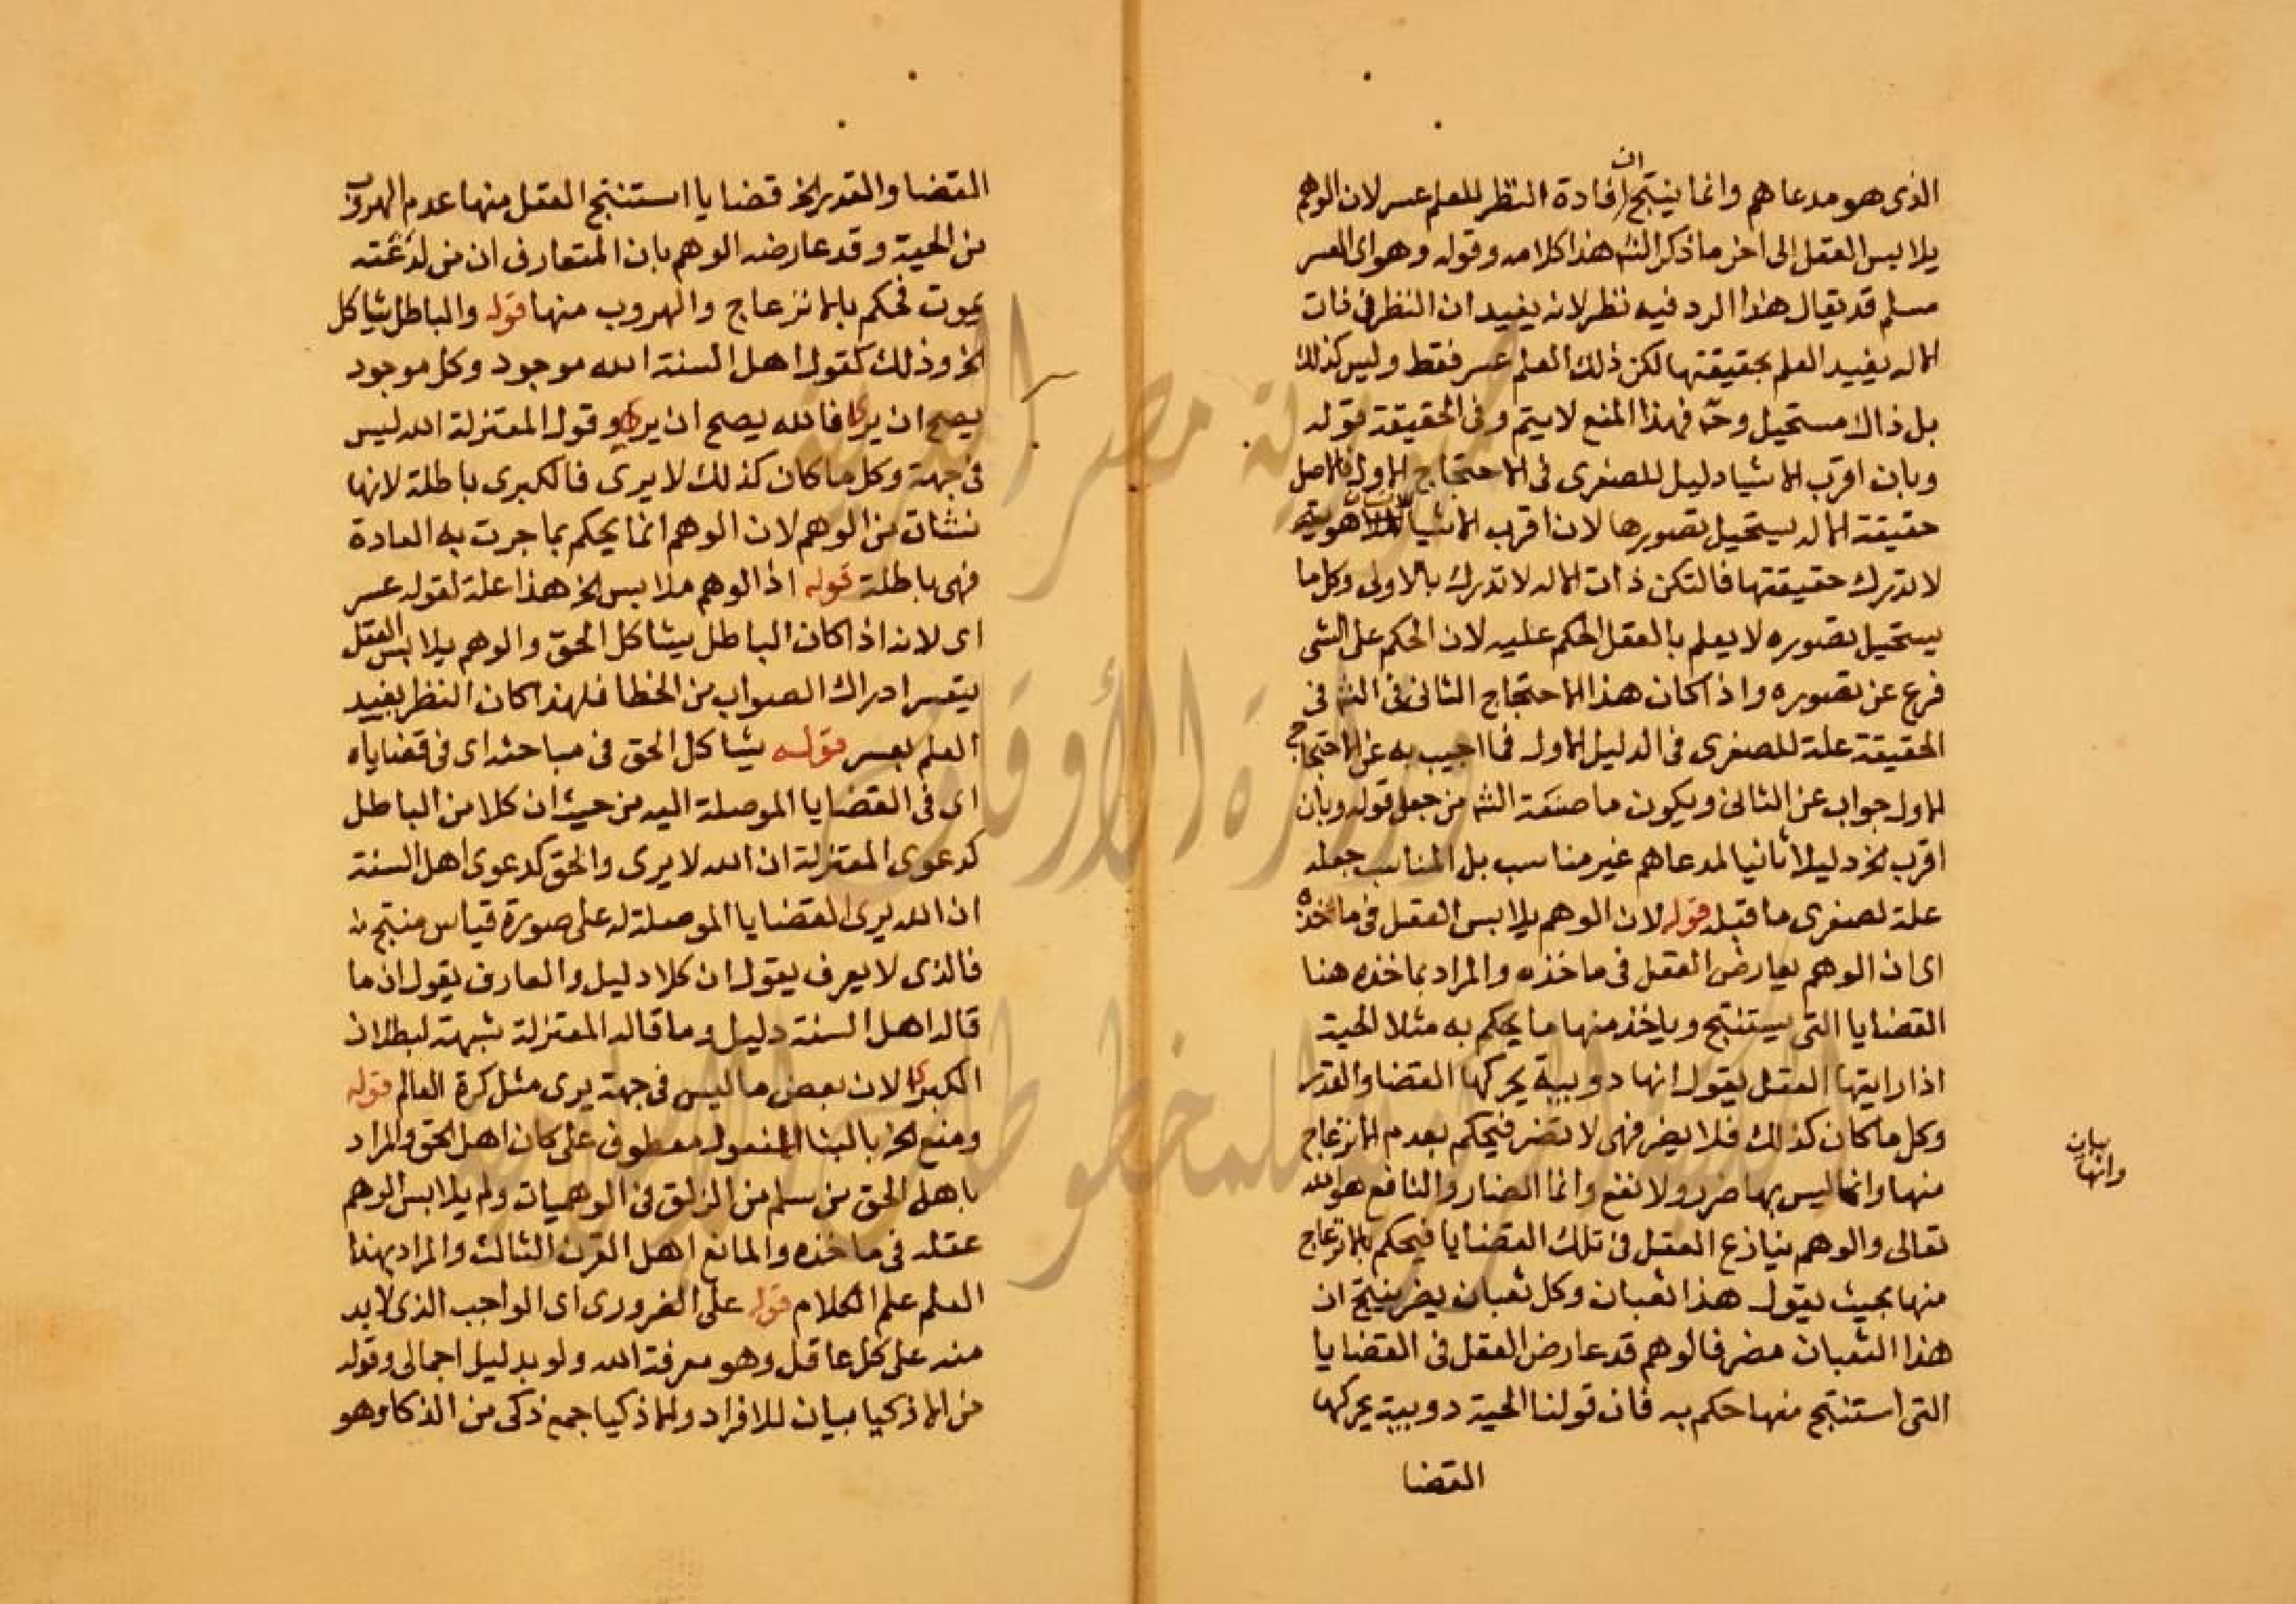 الذى هو مدعاهم وانما ينتج ان افادة النظر للعلم عسر لان الوهم
يلابس العقل الى اخر ما ذكر الش هذا كلامه وقوله وهو اى العسر
مسلم قد يقال هذا الرد فيه نظر لانه يفيد ان النظر فى ذات
الاله يفيد العلم بحقيقتها لكن ذلك العلم عسر فقط وليس كذلك
بل ذاك مستحيل وح فهذا المنع لا يتم وفى الحقيقة قوله
وبان اقرب الاشيا دليل للصغرى فى الاحتجاج الاول فالاصل
حقيقة الاله يستحيل تصورها لان اقرب الاشيا للانسان هويته
لا تدرك حقيقتها فالتكن ذات الاله لا تدرك بالاولى وكل ما
يستحيل تصوره لا يعلم بالعقل الحكم عليه لان الحكم على الشى
فرع عن تصوره واذا كان هذا الاحتجاج الثانى فى الش فى
الحقيقة علة للصغرى فى الدليل الاول فما اجيب به عن الاحتجاج
الاول جواب عن الثانى ويكون ما صنعه الش من جعل قوله وبان
اقرب الخ دليلا ثانيا لمدعاهم غير مناسب بل المناسب جعله
علة لصغرى ما قبله قوله لان الوهم يلابس العقل فى ماخذه
اى ان الوهم يعارض العقل فى ماخذه والمراد بماخذه هنا
القضايا التى يستنتج وياخذ منها ما يحكم به مثلا الحية
اذا رايتها العقل يقول انها دويبة يحركها القضا والقدر
وكل ما كان كذلك فلا يضر فهى لا تضر فيحكم بعدم الانزعاج
منها وانها ليس بها ضرر ولا نفع وانما الضار والنافع هو الله
تعالى والوهم ينازع العقل فى تلك القضايا فيحكم بالانزعاج
منها بحيث يقول هذا ثعبان وكل ثعبان يضر ينتج ان
هذا الثعبان مضر فالوهم قد عارض العقل فى القضايا
التى استنتج منها حكم به فان قولنا الحية دويبة يحركها
القضا
بيان
وانها
القضا والقدر الخ قضايا استنتج العقل منها عدم الهروب
من الحية وقد عارضه الوهم بان المتعارف ان من لدغته
يموت فحكم بالانزعاج والهروب منها قوله والباطل يشاكل
الخ وذلك كقول اهل السنة الله موجود وكل موجود
يصح ان يرى فالله يصح ان يرى وقول المعتزلة الله ليس
فى جهة وكل ما كان كذلك لا يرى فالكبرى باطلة لانها
نشات من الوهم لان الوهم انما يحكم بما جرت به العادة
فهى باطلة قوله اذ الوهم ملابس الخ هذا علة لقوله عسر
اى لانه اذا كان الباطل يشاكل الحق والوهم يلابس العقل
يتعسر ادراك الصواب من الخطا فلهذا كان النظر يفيد
العلم بعسر قوله يشاكل الحق فى مباحثه اى فى قضاياه
اى فى القضايا الموصلة اليه من حيث ان كلا من الباطل
كدعوى المعتزلة ان الله لا يرى والحق كدعوى اهل السنة
ان الله يرى القضايا الموصلة له على صورة قياس منتج
فالذى لا يعرف يقول ان كلا دليل والعارف يقول ان ما
قاله اهل السنة دليل وما قاله المعتزلة شبهة لبطلان
الكبرى لان بعض ما ليس فى جهة يرى مثل كرة العالم قوله
ومنع الخ بالبنا للمفعول معطوف على كان اهل الحق والمراد
باهل الحق من سلم من الزلق فى الوهميات ولم يلابس الوهم
عقله فى ماخذه والمانع اهل القرن الثالث والمراد بهذا
العلم علم الكلام قوله على الضرورى اى الواجب الذى لا بد
منه على كل عاقل وهو معرفة الله ولو بدليل اجمالى وقوله
من الاذكيا بيان للافراد والاذكيا جمع ذكى من الذكا وهو